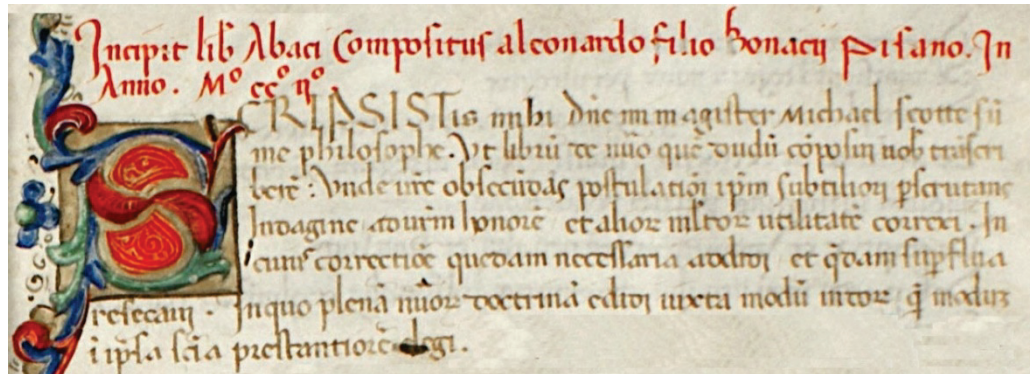 Incipit lib Abaci Compositus a leonardo filio bonacij Pisano. In
Anno. Mº ccº ijº.
SCRIPSISTis mihi dne mi magister Michael scotte sū
me philosophe. Ut librū de nūo quē dudū cōposui uob trāscri
berē: Unde ure obsecūdās postulatiōi ipm subtiliori pscrutans
Indagine ad urm honorē et alior mltor utilitatē correxi. In
cuius correctiōe quedam necessaria addidi et qdam supflua
resecaui. In quo plenā nūor doctrinā edidi iuxta modū indor q modū
i ipsa sciā prestantiorē elegi.